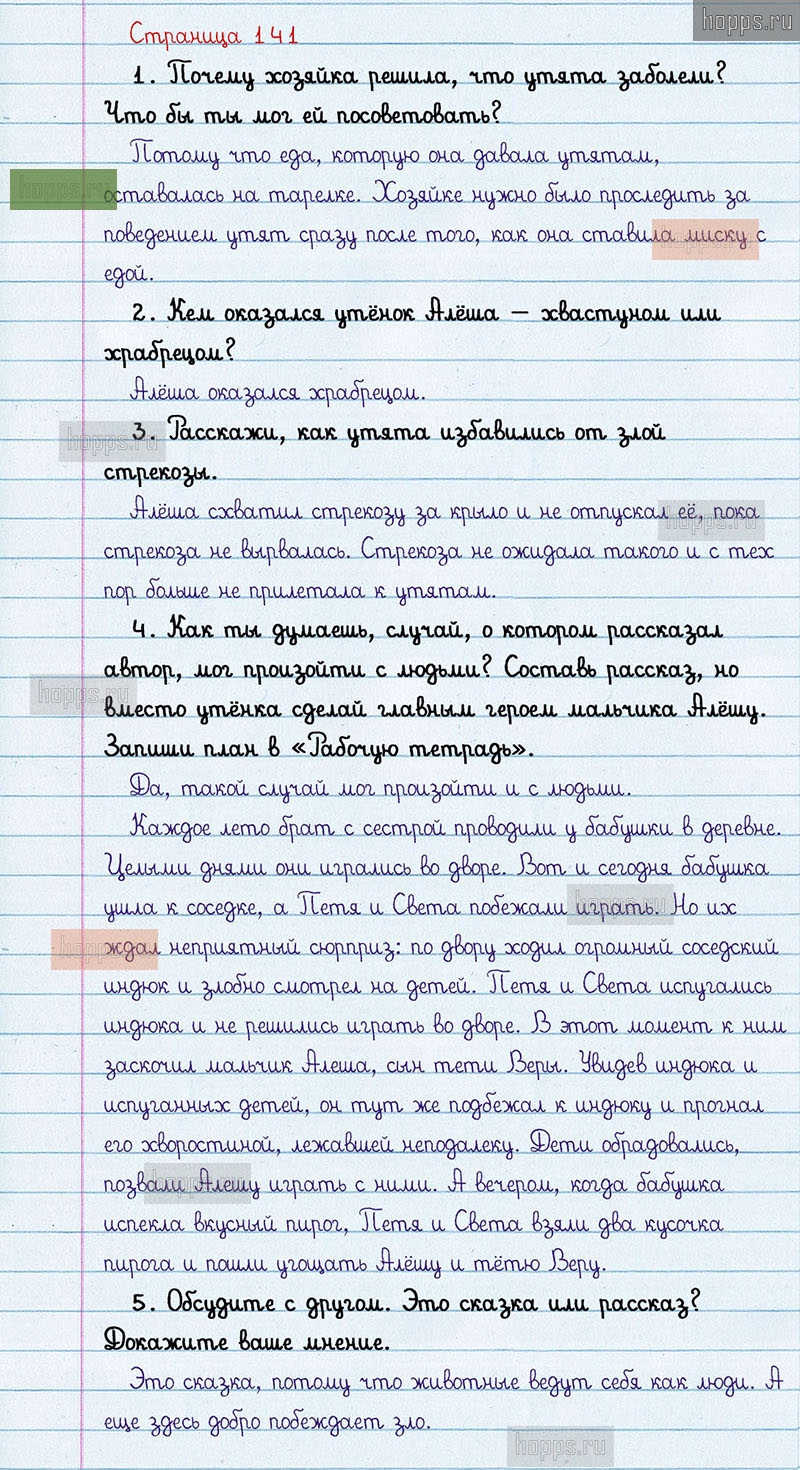 hopps.ru
Страница 141
1. Почему хозяйка решила, что утята заболели?
Что бы ты мог ей посоветовать?
Потому что еда, которую она давала утятам,
hopps.ru
оставалась на тарелке. Хозяйке нужно было проследить за
поведением утят сразу после того, как она ставила миску с
hopps.ru
едой.
2. Кем оказался утёнок Алёша — хвастуном или
храбрецом?
Алёша оказался храбрецом.
3. Расскажи, как утята избавились от злой
hopps.ru
стрекозы.
Алёша схватил стрекозу за крыло и не отпускал её, пока
hopps.ru
стрекоза не вырвалась. Стрекоза не ожидала такого и с тех
пор больше не прилетала к утятам.
4. Как ты думаешь, случай, о котором рассказал
автор, мог произойти с людьми? Составь рассказ, но
hopps.ru
вместо утёнка сделай главным героем мальчика Алёшу.
Запиши план в «Рабочую тетрадь».
Да, такой случай мог произойти и с людьми.
Каждое лето брат с сестрой проводили у бабушки в деревне.
Целыми днями они игрались во дворе. Вот и сегодня бабушка
ушла к соседке, а Петя и Света побежали играть. Но их
hopps.ru
ждал неприятный сюрприз: по двору ходил огромный соседский
hopps.ru
индюк и злобно смотрел на детей. Петя и Света испугались
индюка и не решились играть во дворе. В этот момент к ним
заскочил мальчик Алеша, сын тети Веры. Увидев индюка и
испуганных детей, он тут же подбежал к индюку и прогнал
его хворостиной, лежавшей неподалеку. Дети обрадовались,
позвали Алешу играть с ними. А вечером, когда бабушка
hopps.ru
испекла вкусный пирог, Петя и Света взяли два кусочка
пирога и пошли угощать Алёшу и тётю Веру.
5. Обсудите с другом. Это сказка или рассказ?
Докажите ваше мнение.
Это сказка, потому что животные ведут себя как люди. А
еще здесь добро побеждает зло.
hopps.ru